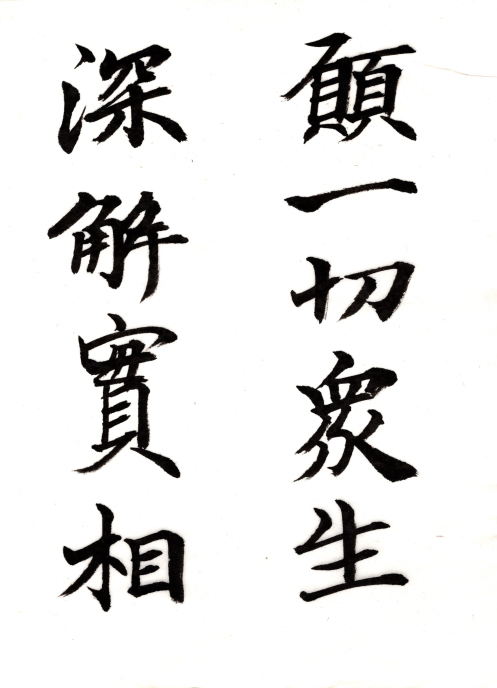 願一切衆生
深解實相